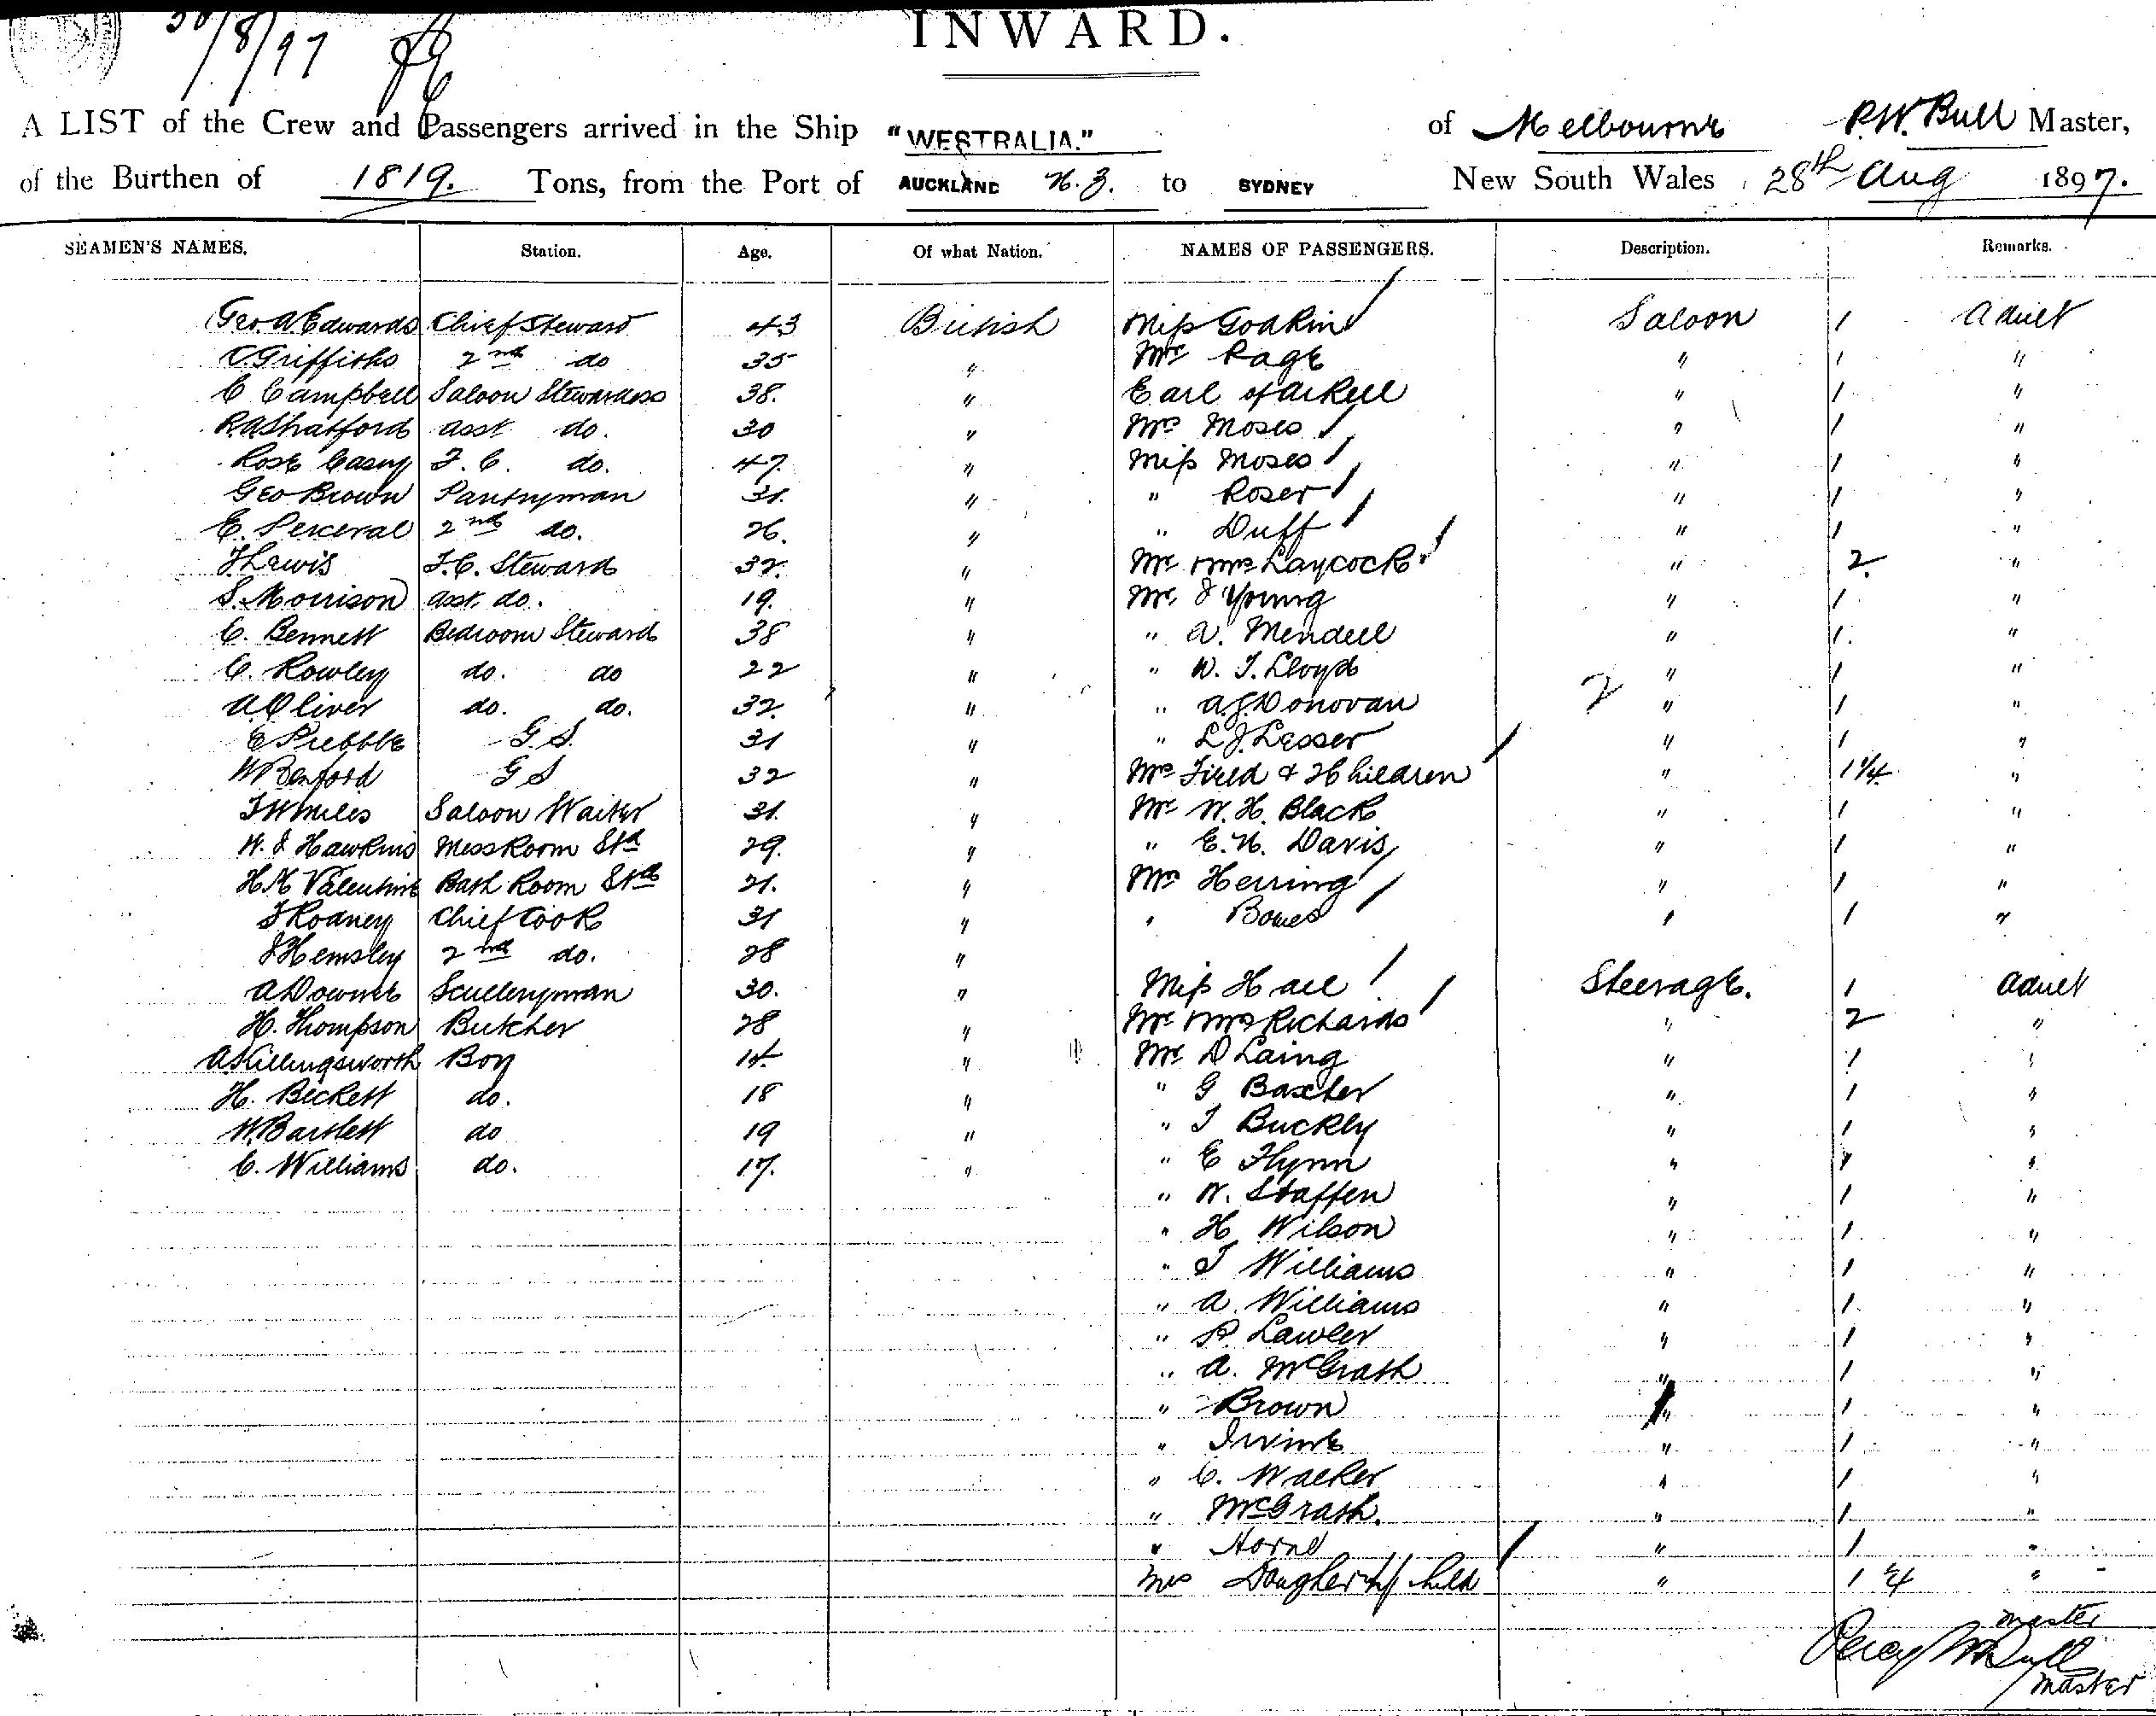 30/8/97
INWARD.
A LIST of the Crew and Passengers arrived in the Ship "WESTRALIA." of Melbourne P.W. Bull Master,
of the Burthen of 1819. Tons, from the Port of AUCKLAND N.Z. to SYDNEY New South Wales, 28th Aug 1897.
SEAMEN'S NAMES. Station. Age. Of what Nation. NAMES OF PASSENGERS. Description. Remarks.
Geo A Edwards Chief Steward 43 British Miss Goakin Saloon 1 Adult
C Griffiths 2nd do 35 " Mr Page " 1 "
C Campbell Saloon Stewardess 38. " Earl of Arkell " 1 "
R A Shatford asst do. 30 " Mrs Moses " 1 "
Rose Casey F.C. do. 47. " Miss Moses " 1 "
Geo Brown Pantryman 31. " " Roser " 1 "
E. Perceval 2nd do. 26. " " Duff " 1 "
J Lewis F.C. Steward 32. " Mr & Mrs Laycock " 2 "
S. Morrison asst. do. 19. " Mr J Young " 1 "
C. Bennett Bedroom Steward 38 " " A. Mendell " 1. "
C. Rowley do. do 22 " " W. T. Lloyd " 1 "
A Oliver do. do. 32. " " A.J. Donovan 2 " 1 "
E Prebble G.S. 31 " " L J. Lesser " 1 "
W Benford G S 32 " Mrs Field & 2 Children " 1 1/4 "
T W Miles Saloon Waiter 31. " Mr W. H. Black " 1 "
W. J Hawkins Mess Room Std 29. " " E. N. Davis " 1 "
H K Valentine Bath Room Std 21. " Mrs Herring " 1 "
J Rodney Chief Cook 31 " " Bowes " 1 "
J Hemsley 2nd do. 28 "
A Downes Sculleryman 30. " Miss Hall Steerage. 1 Adult
H. Thompson Butcher 28 " Mr & Mrs Richards " 2 "
A Killingsworth Boy 14. " Mr D Laing " 1 "
H. Beckett do. 18 " " G Baxter " 1 "
W. Bartlett do 19 " " T Buckly " 1 "
C. Williams do. 17. " " E Flynn " 1 "
" W. Staffen " 1 "
" H Wilson " 1 "
" T Williams " 1 "
" A. Williams " 1 "
" P. Lawler " 1 "
" A. McGrath " 1 "
" Brown " 1 "
" Irvine " 1 "
" C. Walker " 1 "
" McGrath. " 1 "
" Horne " 1 "
Mrs Dougherty child " 1 1/4 "
master
Percy W Bull
Master